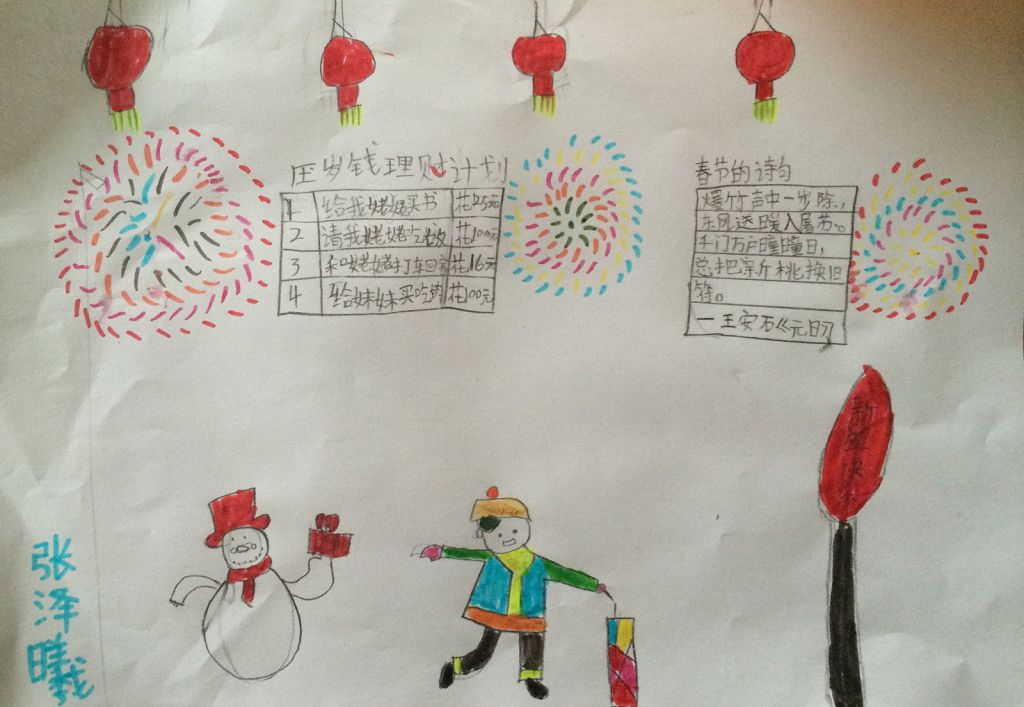 压岁钱理财计划
1 给我姥姥买书 花25元
2 请我姥姥吃饭 花100元
3 和姥姥打车回家 花16元
4 给妹妹买吃的 花100元
春节的诗句
爆竹声中一岁除,
东风送暖入屠苏。
千门万户瞳瞳日,
总把新桃换旧
符。
一王安石《元日》
新年快乐
张泽曦